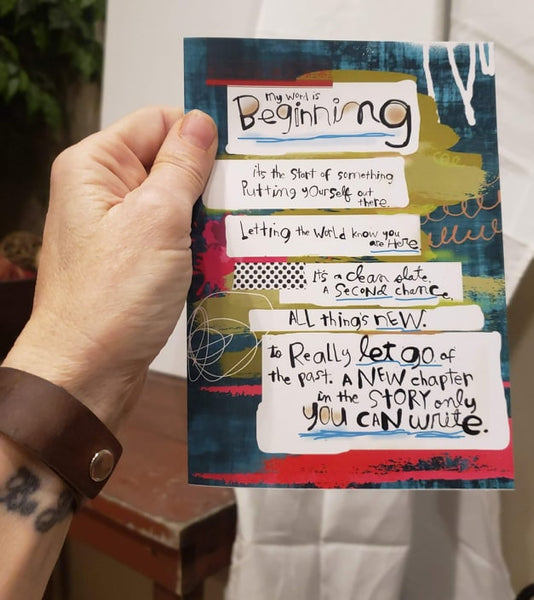 my word is
Beginning
it's the start of something
Putting yourself out
there.
Letting the world know you
are Here
It's a clean slate.
A Second chance.
ALL thing's NEW.
to Really let go of
the past. A NEW chapter
in the STORY only
YOU CAN write.